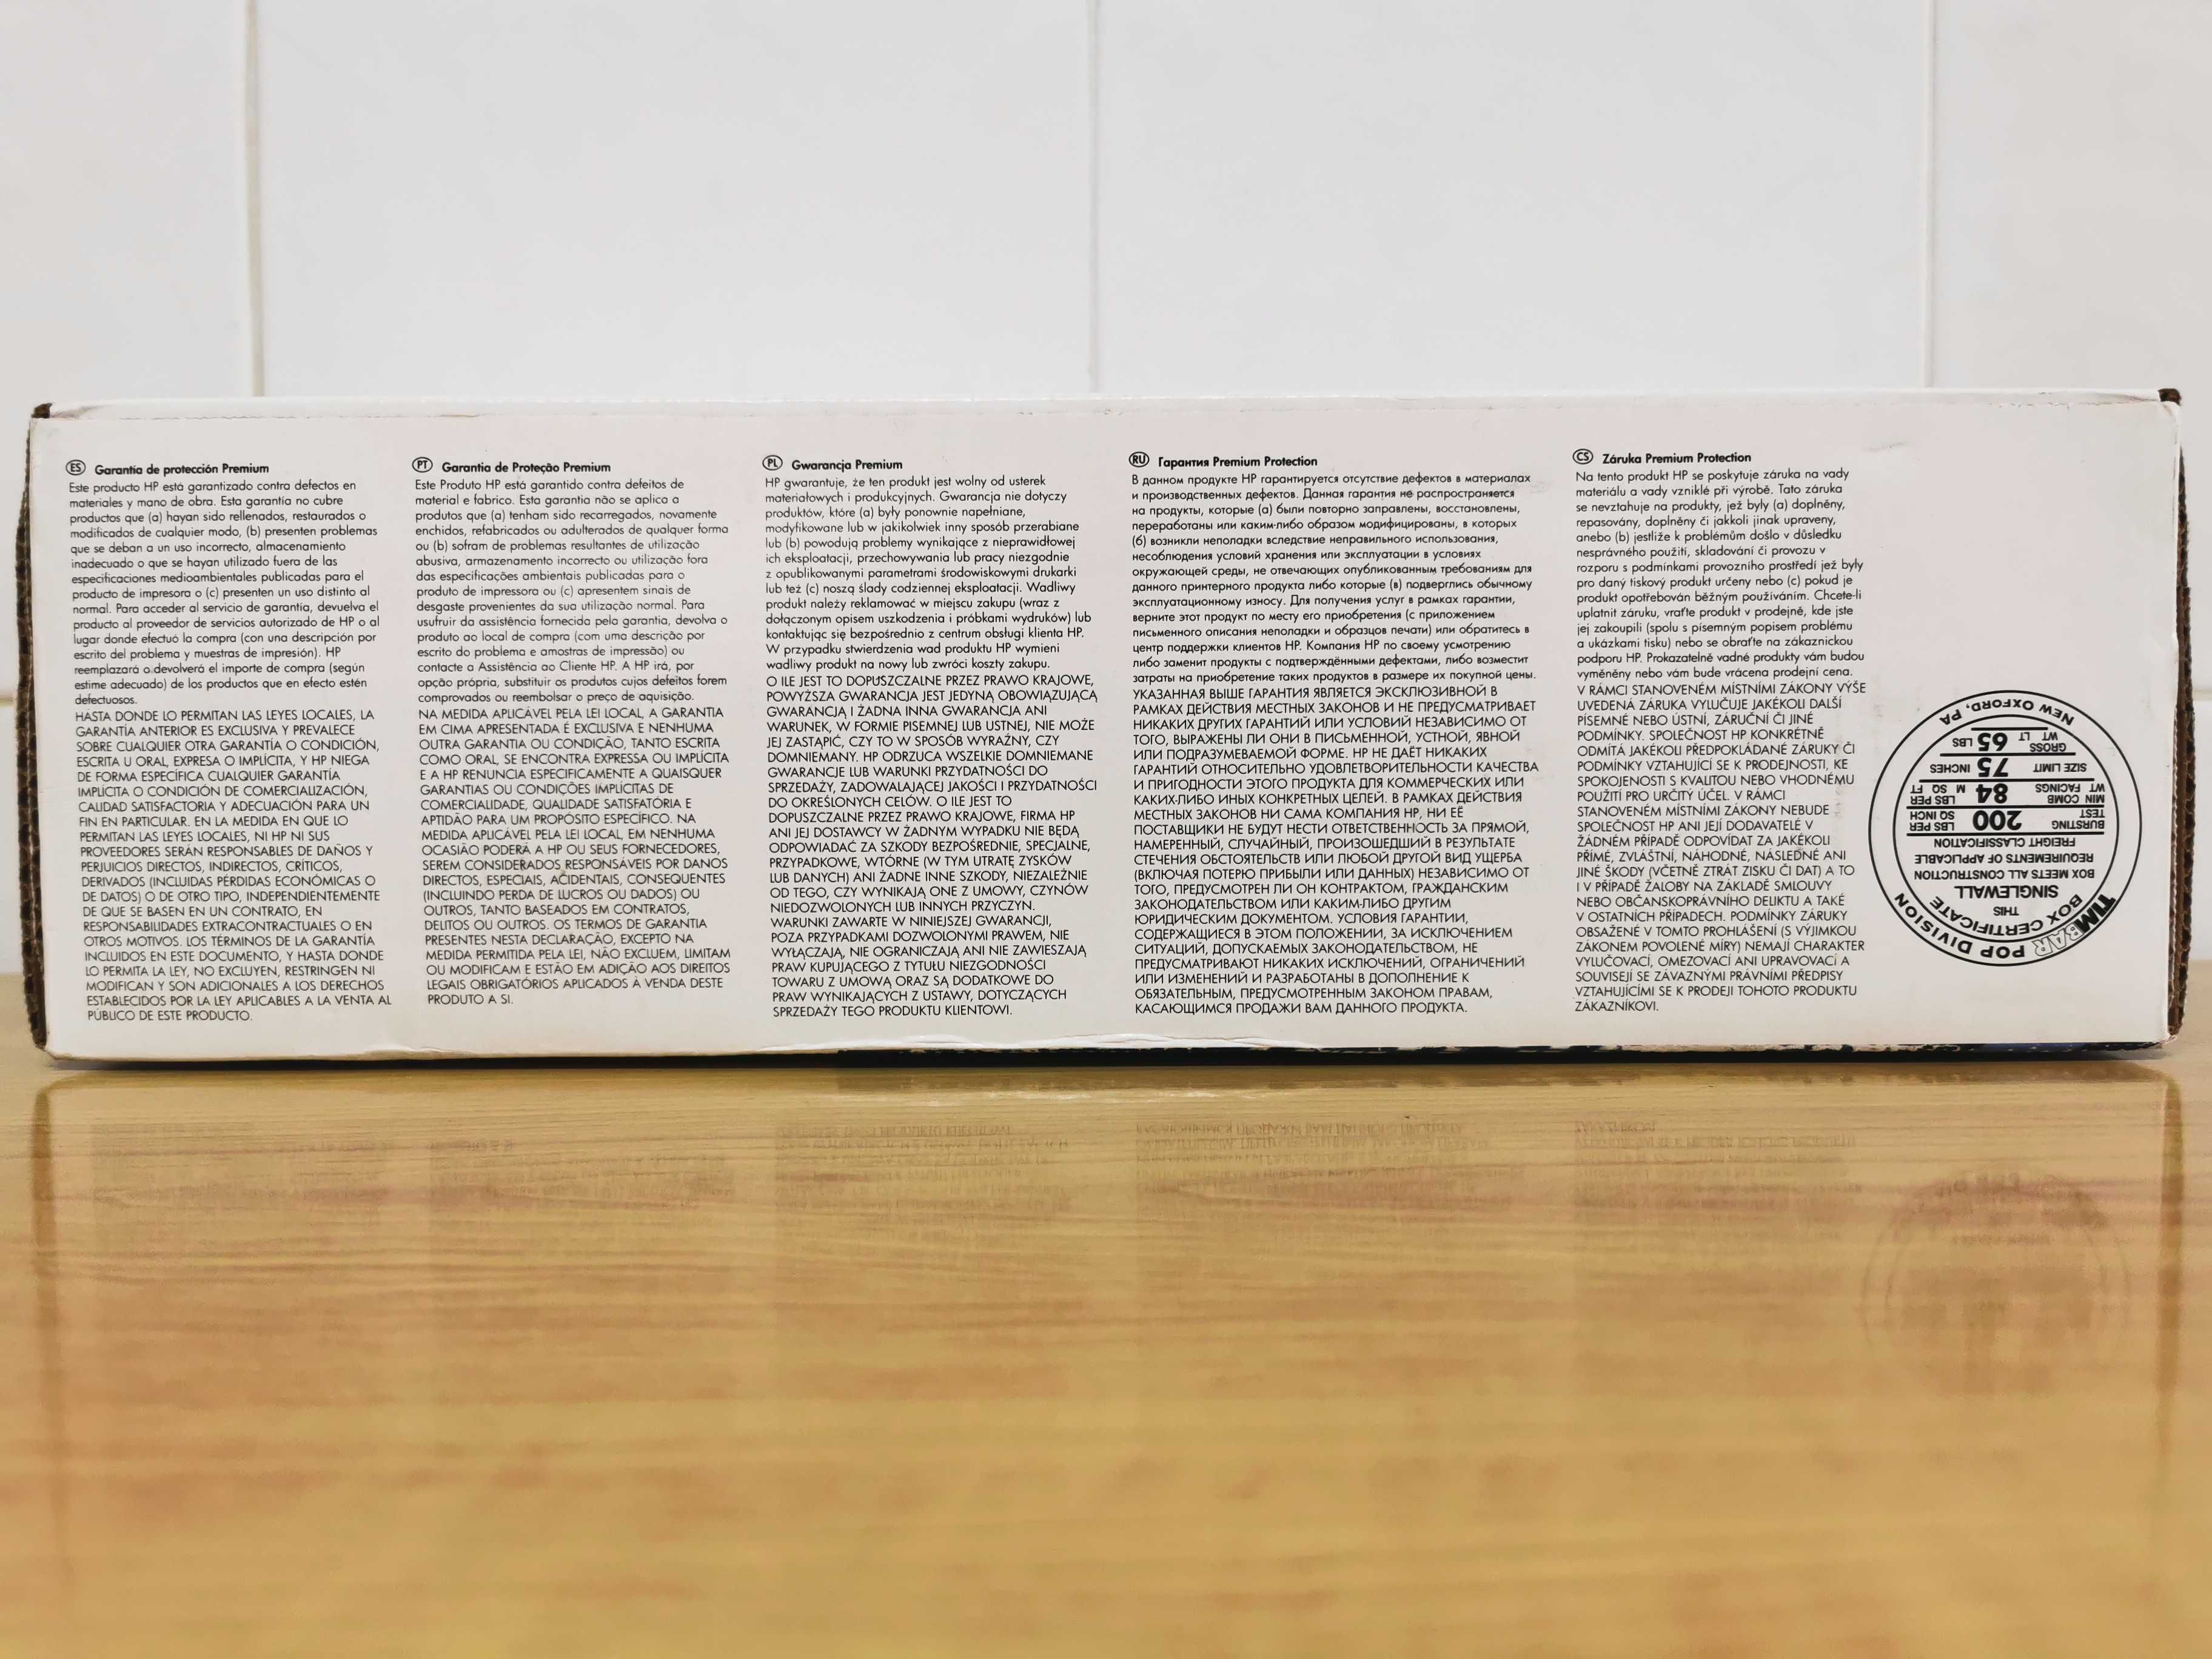 ES Garantía de protección Premium
Este producto HP está garantizado contra defectos en
materiales y mano de obra. Esta garantía no cubre
productos que (a) hayan sido rellenados, restaurados o
modificados de cualquier modo, (b) presenten problemas
que se deban a un uso incorrecto, almacenamiento
inadecuado o que se hayan utilizado fuera de las
especificaciones medioambientales publicadas para el
producto de impresora o (c) presenten un uso distinto al
normal. Para acceder al servicio de garantía, devuelva el
producto al proveedor de servicios autorizado de HP o al
lugar donde efectuó la compra (con una descripción por
escrito del problema y muestras de impresión). HP
reemplazará o devolverá el importe de compra (según
estime adecuado) de los productos que en efecto estén
defectuosos.
HASTA DONDE LO PERMITAN LAS LEYES LOCALES, LA
GARANTÍA ANTERIOR ES EXCLUSIVA Y PREVALECE
SOBRE CUALQUIER OTRA GARANTÍA O CONDICIÓN,
ESCRITA U ORAL, EXPRESA O IMPLÍCITA, Y HP NIEGA
DE FORMA ESPECÍFICA CUALQUIER GARANTÍA
IMPLÍCITA O CONDICIÓN DE COMERCIALIZACIÓN,
CALIDAD SATISFACTORIA Y ADECUACIÓN PARA UN
FIN EN PARTICULAR. EN LA MEDIDA EN QUE LO
PERMITAN LAS LEYES LOCALES, NI HP NI SUS
PROVEEDORES SERÁN RESPONSABLES DE DAÑOS Y
PERJUICIOS DIRECTOS, INDIRECTOS, CRÍTICOS,
DERIVADOS (INCLUIDAS PÉRDIDAS ECONÓMICAS O
DE DATOS) O DE OTRO TIPO, INDEPENDIENTEMENTE
DE QUE SE BASEN EN UN CONTRATO, EN
RESPONSABILIDADES EXTRACONTRACTUALES O EN
OTROS MOTIVOS. LOS TÉRMINOS DE LA GARANTÍA
INCLUIDOS EN ESTE DOCUMENTO, Y HASTA DONDE
LO PERMITA LA LEY, NO EXCLUYEN, RESTRINGEN NI
MODIFICAN Y SON ADICIONALES A LOS DERECHOS
ESTABLECIDOS POR LA LEY APLICABLES A LA VENTA AL
PÚBLICO DE ESTE PRODUCTO.
PT Garantia de Proteção Premium
Este Produto HP está garantido contra defeitos de
material e fabrico. Esta garantia não se aplica a
produtos que (a) tenham sido recarregados, novamente
enchidos, refabricados ou adulterados de qualquer forma
ou (b) sofram de problemas resultantes de utilização
abusiva, armazenamento incorrecto ou utilização fora
das especificações ambientais publicadas para o
produto de impressora ou (c) apresentem sinais de
desgaste provenientes da sua utilização normal. Para
usufruir da assistência fornecida pela garantia, devolva o
produto ao local de compra (com uma descrição por
escrito do problema e amostras de impressão) ou
contacte a Assistência ao Cliente HP. A HP irá, por
opção própria, substituir os produtos cujos defeitos forem
comprovados ou reembolsar o preço de aquisição.
NA MEDIDA APLICÁVEL PELA LEI LOCAL, A GARANTIA
EM CIMA APRESENTADA É EXCLUSIVA E NENHUMA
OUTRA GARANTIA OU CONDIÇÃO, TANTO ESCRITA
COMO ORAL, SE ENCONTRA EXPRESSA OU IMPLÍCITA
E A HP RENUNCIA ESPECIFICAMENTE A QUAISQUER
GARANTIAS OU CONDIÇÕES IMPLÍCITAS DE
COMERCIALIDADE, QUALIDADE SATISFATÓRIA E
APTIDÃO PARA UM PROPÓSITO ESPECÍFICO. NA
MEDIDA APLICÁVEL PELA LEI LOCAL, EM NENHUMA
OCASIÃO PODERÁ A HP OU SEUS FORNECEDORES,
SEREM CONSIDERADOS RESPONSÁVEIS POR DANOS
DIRECTOS, ESPECIAIS, ACIDENTAIS, CONSEQUENTES
(INCLUINDO PERDA DE LUCROS OU DADOS) OU
OUTROS, TANTO BASEADOS EM CONTRATOS,
DELITOS OU OUTROS. OS TERMOS DE GARANTIA
PRESENTES NESTA DECLARAÇÃO, EXCEPTO NA
MEDIDA PERMITIDA PELA LEI, NÃO EXCLUEM, LIMITAM
OU MODIFICAM E ESTÃO EM ADIÇÃO AOS DIREITOS
LEGAIS OBRIGATÓRIOS APLICADOS À VENDA DESTE
PRODUTO A SI.
PL Gwarancja Premium
HP gwarantuje, że ten produkt jest wolny od usterek
materiałowych i produkcyjnych. Gwarancja nie dotyczy
produktów, które (a) były ponownie napełniane,
modyfikowane lub w jakikolwiek inny sposób przerabiane
lub (b) powodują problemy wynikające z nieprawidłowej
ich eksploatacji, przechowywania lub pracy niezgodnie
z opublikowanymi parametrami środowiskowymi drukarki
lub też (c) noszą ślady codziennej eksploatacji. Wadliwy
produkt należy reklamować w miejscu zakupu (wraz z
dołączonym opisem uszkodzenia i próbkami wydruków) lub
kontaktując się bezpośrednio z centrum obsługi klienta HP.
W przypadku stwierdzenia wad produktu HP wymieni
wadliwy produkt na nowy lub zwróci koszty zakupu.
O ILE JEST TO DOPUSZCZALNE PRZEZ PRAWO KRAJOWE,
POWYŻSZA GWARANCJA JEST JEDYNĄ OBOWIĄZUJĄCĄ
GWARANCJĄ I ŻADNA INNA GWARANCJA ANI
WARUNEK, W FORMIE PISEMNEJ LUB USTNEJ, NIE MOŻE
JEJ ZASTĄPIĆ, CZY TO W SPOSÓB WYRAŹNY, CZY
DOMNIEMANY. HP ODRZUCA WSZELKIE DOMNIEMANE
GWARANCJE LUB WARUNKI PRZYDATNOŚCI DO
SPRZEDAŻY, ZADOWALAJĄCEJ JAKOŚCI I PRZYDATNOŚCI
DO OKREŚLONYCH CELÓW. O ILE JEST TO
DOPUSZCZALNE PRZEZ PRAWO KRAJOWE, FIRMA HP
ANI JEJ DOSTAWCY W ŻADNYM WYPADKU NIE BĘDĄ
ODPOWIADAĆ ZA SZKODY BEZPOŚREDNIE, SPECJALNE,
PRZYPADKOWE, WTÓRNE (W TYM UTRATĘ ZYSKÓW
LUB DANYCH) ANI ŻADNE INNE SZKODY, NIEZALEŻNIE
OD TEGO, CZY WYNIKAJĄ ONE Z UMOWY, CZYNÓW
NIEDOZWOLONYCH LUB INNYCH PRZYCZYN.
WARUNKI ZAWARTE W NINIEJSZEJ GWARANCJI,
POZA PRZYPADKAMI DOZWOLONYMI PRAWEM, NIE
WYŁĄCZAJĄ, NIE OGRANICZAJĄ ANI NIE ZAWIESZAJĄ
PRAW KUPUJĄCEGO Z TYTUŁU NIEZGODNOŚCI
TOWARU Z UMOWĄ ORAZ SĄ DODATKOWE DO
PRAW WYNIKAJĄCYCH Z USTAWY, DOTYCZĄCYCH
SPRZEDAŻY TEGO PRODUKTU KLIENTOWI.
RU Гарантия Premium Protection
В данном продукте HP гарантируется отсутствие дефектов в материалах
и производственных дефектов. Данная гарантия не распространяется
на продукты, которые (а) были повторно заправлены, восстановлены,
переработаны или каким-либо образом модифицированы, в которых
(б) возникли неполадки вследствие неправильного использования,
несоблюдения условий хранения или эксплуатации в условиях
окружающей среды, не отвечающих опубликованным требованиям для
данного принтерного продукта либо которые (в) подверглись обычному
эксплуатационному износу. Для получения услуг в рамках гарантии,
верните этот продукт по месту его приобретения (с приложением
письменного описания неполадки и образцов печати) или обратитесь в
центр поддержки клиентов HP. Компания HP по своему усмотрению
либо заменит продукты с подтверждёнными дефектами, либо возместит
затраты на приобретение таких продуктов в размере их покупной цены.
УКАЗАННАЯ ВЫШЕ ГАРАНТИЯ ЯВЛЯЕТСЯ ЭКСКЛЮЗИВНОЙ В
РАМКАХ ДЕЙСТВИЯ МЕСТНЫХ ЗАКОНОВ И НЕ ПРЕДУСМАТРИВАЕТ
НИКАКИХ ДРУГИХ ГАРАНТИЙ ИЛИ УСЛОВИЙ НЕЗАВИСИМО ОТ
ТОГО, ВЫРАЖЕНЫ ЛИ ОНИ В ПИСЬМЕННОЙ, УСТНОЙ, ЯВНОЙ
ИЛИ ПОДРАЗУМЕВАЕМОЙ ФОРМЕ. HP НЕ ДАЁТ НИКАКИХ
ГАРАНТИЙ ОТНОСИТЕЛЬНО УДОВЛЕТВОРИТЕЛЬНОСТИ КАЧЕСТВА
И ПРИГОДНОСТИ ЭТОГО ПРОДУКТА ДЛЯ КОММЕРЧЕСКИХ ИЛИ
КАКИХ-ЛИБО ИНЫХ КОНКРЕТНЫХ ЦЕЛЕЙ. В РАМКАХ ДЕЙСТВИЯ
МЕСТНЫХ ЗАКОНОВ НИ САМА КОМПАНИЯ HP, НИ ЕЁ
ПОСТАВЩИКИ НЕ БУДУТ НЕСТИ ОТВЕТСТВЕННОСТЬ ЗА ПРЯМОЙ,
НАМЕРЕННЫЙ, СЛУЧАЙНЫЙ, ПРОИЗОШЕДШИЙ В РЕЗУЛЬТАТЕ
СТЕЧЕНИЯ ОБСТОЯТЕЛЬСТВ ИЛИ ЛЮБОЙ ДРУГОЙ ВИД УЩЕРБА
(ВКЛЮЧАЯ ПОТЕРЮ ПРИБЫЛИ ИЛИ ДАННЫХ) НЕЗАВИСИМО ОТ
ТОГО, ПРЕДУСМОТРЕН ЛИ ОН КОНТРАКТОМ, ГРАЖДАНСКИМ
ЗАКОНОДАТЕЛЬСТВОМ ИЛИ КАКИМ-ЛИБО ДРУГИМ
ЮРИДИЧЕСКИМ ДОКУМЕНТОМ. УСЛОВИЯ ГАРАНТИИ,
СОДЕРЖАЩИЕСЯ В ЭТОМ ПОЛОЖЕНИИ, ЗА ИСКЛЮЧЕНИЕМ
СИТУАЦИЙ, ДОПУСКАЕМЫХ ЗАКОНОДАТЕЛЬСТВОМ, НЕ
ПРЕДУСМАТРИВАЮТ НИКАКИХ ИСКЛЮЧЕНИЙ, ОГРАНИЧЕНИЙ
ИЛИ ИЗМЕНЕНИЙ И РАЗРАБОТАНЫ В ДОПОЛНЕНИЕ К
ОБЯЗАТЕЛЬНЫМ, ПРЕДУСМОТРЕННЫМ ЗАКОНОМ ПРАВАМ,
КАСАЮЩИМСЯ ПРОДАЖИ ВАМ ДАННОГО ПРОДУКТА.
CS Záruka Premium Protection
Na tento produkt HP se poskytuje záruka na vady
materiálu a vady vzniklé při výrobě. Tato záruka
se nevztahuje na produkty, jež byly (a) doplněny,
repasovány, doplněny či jakkoli jinak upraveny,
anebo (b) jestliže k problémům došlo v důsledku
nesprávného použití, skladování či provozu v
rozporu s podmínkami provozního prostředí jež byly
pro daný tiskový produkt určeny nebo (c) pokud je
produkt opotřebován běžným používáním. Chcete-li
uplatnit záruku, vraťte produkt v prodejně, kde jste
jej zakoupili (spolu s písemným popisem problému
a ukázkami tisku) nebo se obraťte na zákaznickou
podporu HP. Prokazatelně vadné produkty vám budou
vyměněny nebo vám bude vrácena prodejní cena.
V RÁMCI STANOVENÉM MÍSTNÍMI ZÁKONY VÝŠE
UVEDENÁ ZÁRUKA VYLUČUJE JAKÉKOLI DALŠÍ
PÍSEMNÉ NEBO ÚSTNÍ, ZÁRUČNÍ ČI JINÉ
PODMÍNKY. SPOLEČNOST HP KONKRÉTNĚ
ODMÍTÁ JAKÉKOLI PŘEDPOKLÁDANÉ ZÁRUKY ČI
PODMÍNKY VZTAHUJÍCÍ SE K PRODEJNOSTI, KE
SPOKOJENOSTI S KVALITOU NEBO VHODNÉMU
POUŽITÍ PRO URČITÝ ÚČEL. V RÁMCI
STANOVENÉM MÍSTNÍMI ZÁKONY NEBUDE
SPOLEČNOST HP ANI JEJÍ DODAVATELÉ V
ŽÁDNÉM PŘÍPADĚ ODPOVÍDAT ZA JAKÉKOLI
PŘÍMÉ, ZVLÁŠTNÍ, NÁHODNÉ, NÁSLEDNÉ ANI
JINÉ ŠKODY (VČETNĚ ZTRÁT ZISKU ČI DAT) A TO
I V PŘÍPADĚ ŽALOBY NA ZÁKLADĚ SMLOUVY
NEBO OBČANSKOPRÁVNÍHO DELIKTU A TAKÉ
V OSTATNÍCH PŘÍPADECH. PODMÍNKY ZÁRUKY
OBSAŽENÉ V TOMTO PROHLÁŠENÍ (S VÝJIMKOU
ZÁKONEM POVOLENÉ MÍRY) NEMAJÍ CHARAKTER
VYLUČOVACÍ, OMEZOVACÍ ANI UPRAVOVACÍ A
SOUVISEJÍ SE ZÁVAZNÝMI PRÁVNÍMI PŘEDPISY
VZTAHUJÍCÍMI SE K PRODEJI TOHOTO PRODUKTU
ZÁKAZNÍKOVI.
TIMBAR POP DIVISION
BOX CERTIFICATE
THIS
SINGLEWALL
BOX MEETS ALL CONSTRUCTION
REQUIREMENTS OF APPLICABLE
FREIGHT CLASSIFICATION
BURSTING TEST 200 LBS PER SQ INCH
MIN COMB WT FACINGS 84 LBS PER M SQ FT
SIZE LIMIT 75 INCHES
GROSS WT LT 65 LBS
NEW OXFORD, PA